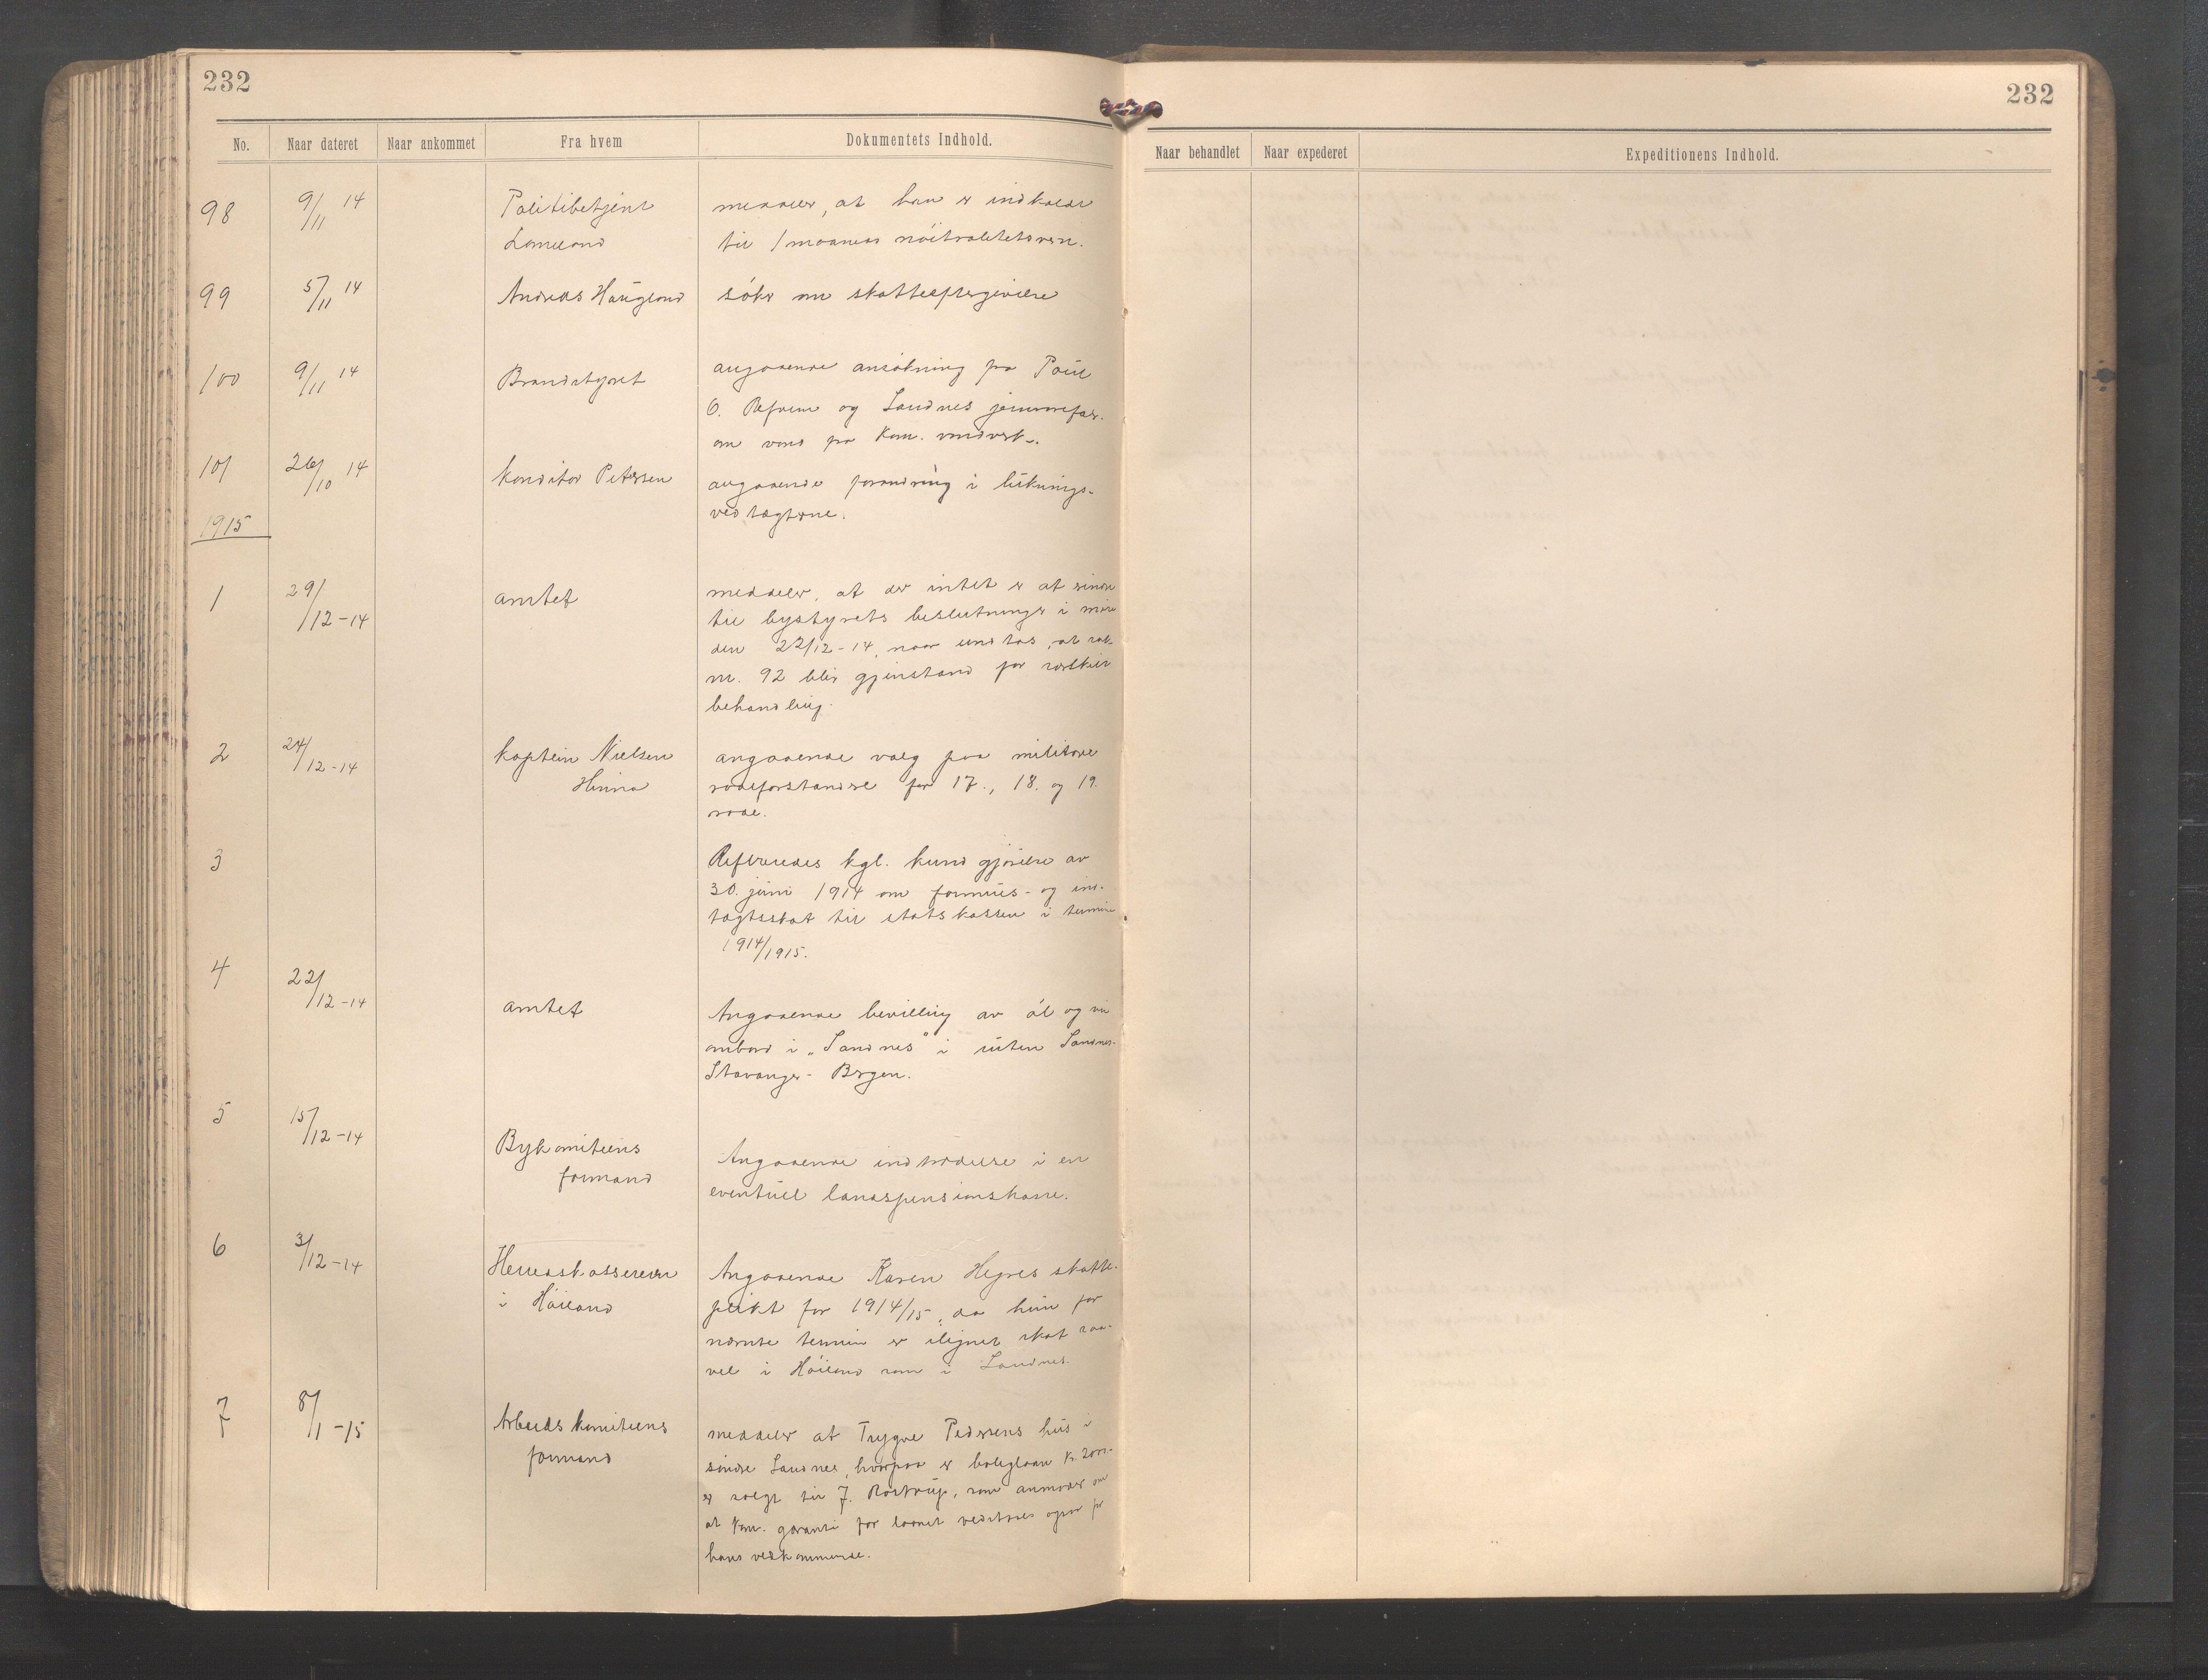 232
232
No. Naar dateret Naar ankommet Fra hvem Dokumentets Indhold.
Naar behandlet Naar expederet Expeditionens Indhold.
98 9/11 14 Politibetjent meddeler, at han er indkaldt
Lomeland til 1 maaneds nöitralitetsvern.
99 5/11 14 Andreas Haugland söker om skatteeftergivelse
100 9/11 14 Brandstyret angaaende ansökning fra Paul
O. Refsnes og Sandnes jernvarefabr.
om vand fra Kom. vandverk.
101 26/10 14 Konditor Petersen angaaende forandring i luknings-
vedtægterne.
1915
1 29/12-14 amtet meddeler, at der intet er at erindre
til bystyrets beslutninger i møte
den 22/12-14, naar undtas, at sak
nr. 92 blir gjenstand for særskilt
behandling.
2 24/12-14 Kaptein Nielsen angaaende valg paa militære
Hinna rodeforstandere for 17., 18. og 19.
rode.
3 Refereredes kgl. kundgjörelse av
30. juni 1914 om formues- og ind-
tægtsskat til statskassen i termin
1914/1915.
4 22/12-14 amtet Angaaende bevilling av öl og vin
ombord i "Sandnes" i ruten Sandnes-
Stavanger-Bergen.
5 15/12-14 Bykomiteens Angaaende indtrædelse i en
formand eventuel landspensionskasse.
6 3/12-14 Herredskassereren Angaaende Karen Hegres skatte-
i Höiland plikt for 1914/15, da hun for
nævnte termin er ilignet skat saa-
vel i Höiland som i Sandnes.
7 8/1-15 Arbeidskomiteens meddeler at Trygve Pedersens hus i
formand söndre Sandnes, hvorpaa er boliglaan kr. 2000.-
er solgt til J. Rostrup, som anmoder om
at Kom. garanti for laanet vedstaaes ogsaa for
hans vedkommende.